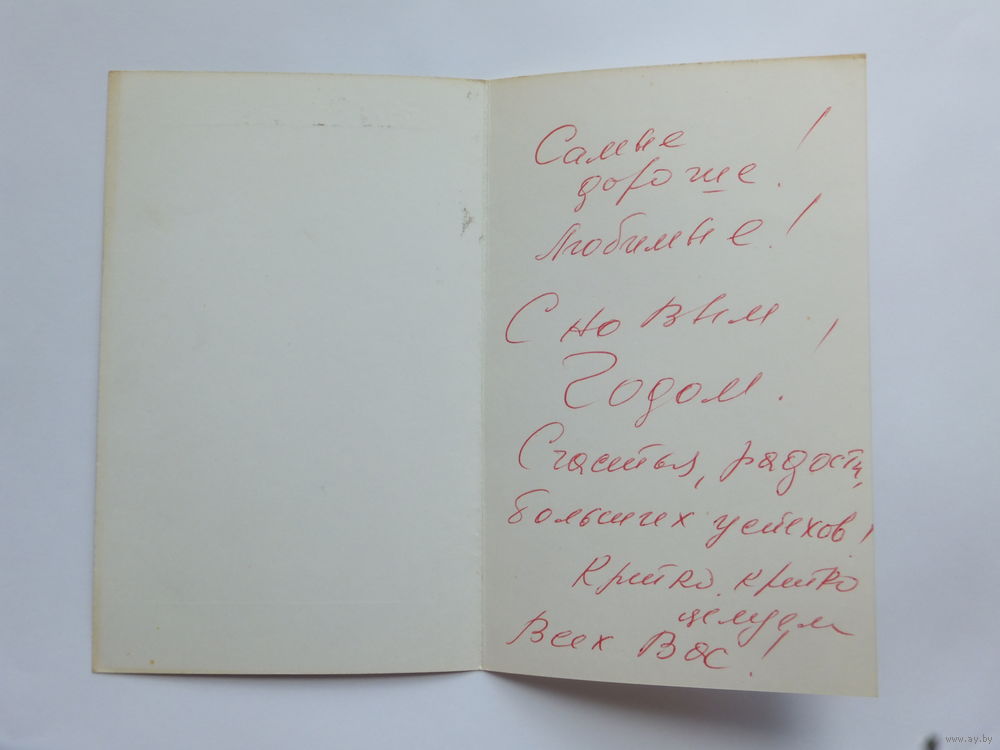 Самые
дорогие!
Любимые!
С новым
Годом!
Счастья, радости,
больших успехов!
Крепко, крепко
целуем
Всех Вас!
www.ay.by